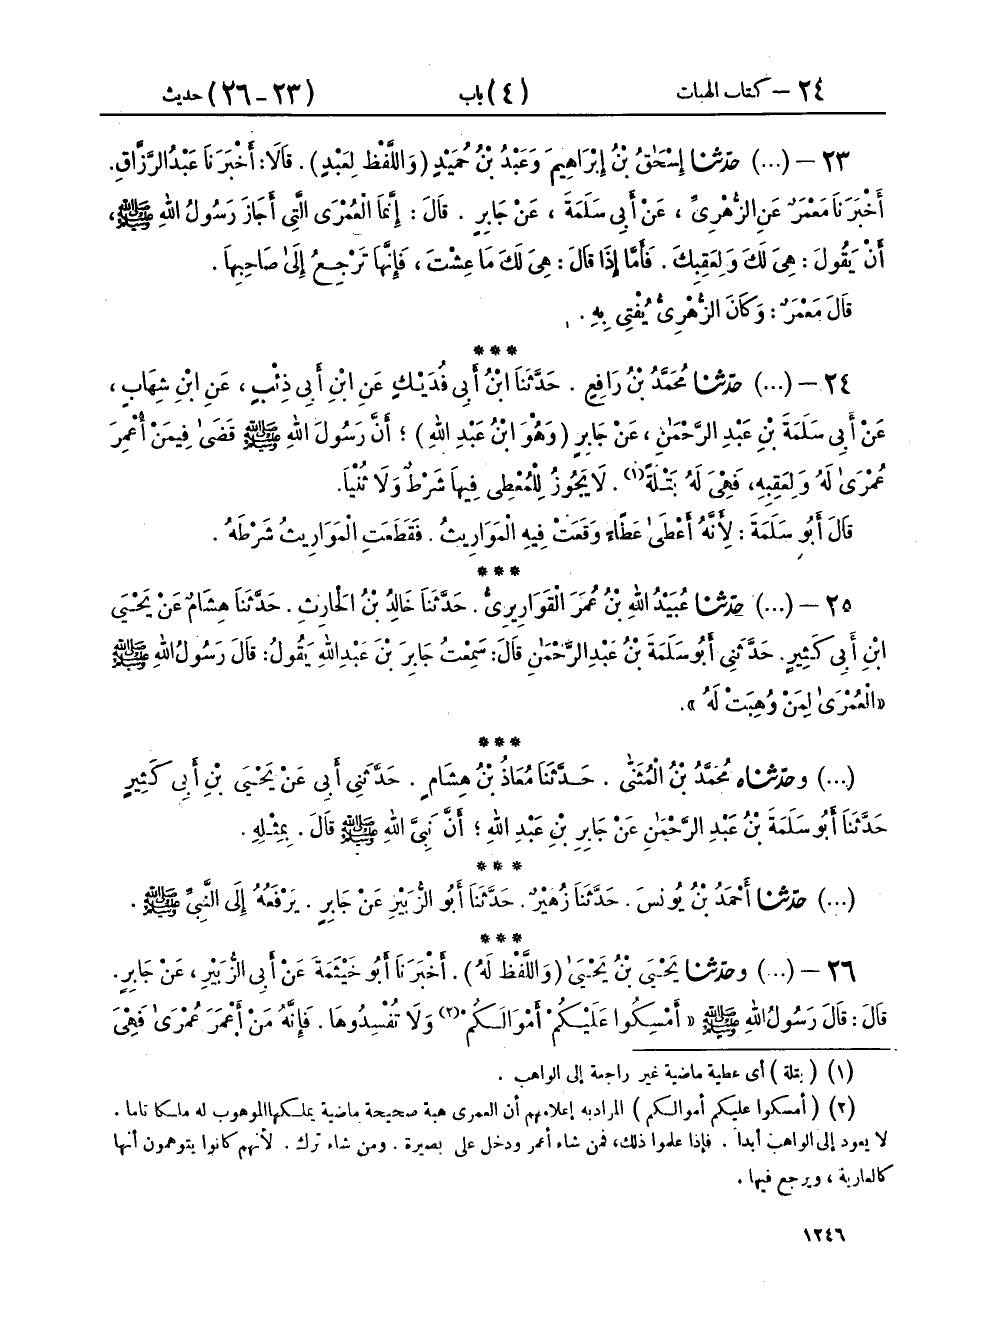 ٢٤ – كتاب الهبات (٤) باب (٢٣-٢٦) حديث
٢٣ – (...) حدّثنا إِسْحَٰقُ بْنُ إِبْرَاهِيمَ وَعَبْدُ بْنُ حُمَيْدٍ (وَاللَّفْظُ لِعَبْدٍ). قَالَا: أَخْبَرَنَا عَبْدُ الرَّزَّاقِ.
أَخْبَرَنَا مَعْمَرٌ عَنِ الزُّهْرِيِّ، عَنْ أَبِي سَلَمَةَ، عَنْ جَابِرٍ. قَالَ: إِنَّمَا الْعُمْرَى الَّتِي أَجَازَ رَسُولُ اللهِ ﷺ،
أَنْ يَقُولَ: هِيَ لَكَ وَلِعَقِبِكَ. فَأَمَّا إِذَا قَالَ: هِيَ لَكَ مَا عِشْتَ، فَإِنَّهَا تَرْجِعُ إِلَىٰ صَاحِبِهَا.
قَالَ مَعْمَرٌ: وَكَانَ الزُّهْرِيُّ يُفْتِي بِهِ.
***
٢٤ – (...) حدّثنا مُحَمَّدُ بْنُ رَافِعٍ. حَدَّثَنَا ابْنُ أَبِي فُدَيْكٍ عَنِ ابْنِ أَبِي ذِئْبٍ، عَنِ ابْنِ شِهَابٍ،
عَنْ أَبِي سَلَمَةَ بْنِ عَبْدِ الرَّحْمَٰنِ، عَنْ جَابِرٍ (وَهُوَ ابْنُ عَبْدِ اللهِ)؛ أَنَّ رَسُولَ اللهِ ﷺ قَضَىٰ فِيمَنْ أُعْمِرَ
عُمْرَىٰ لَهُ وَلِعَقِبِهِ، فَهِيَ لَهُ بَتْلَةً(١). لَا يَجُوزُ لِلْمُعْطِي فِيهَا شَرْطٌ وَلَا ثُنْيَا.
قَالَ أَبُو سَلَمَةَ: لِأَنَّهُ أَعْطَىٰ عَطَاءً وَقَعَتْ فِيهِ الْمَوَارِيثُ. فَقَطَعَتِ الْمَوَارِيثُ شَرْطَهُ.
***
٢٥ – (...) حدّثنا عُبَيْدُ اللهِ بْنُ عُمَرَ الْقَوَارِيرِيُّ. حَدَّثَنَا خَالِدُ بْنُ الْحَارِثِ. حَدَّثَنَا هِشَامٌ عَنْ يَحْيَى
ابْنِ أَبِي كَثِيرٍ. حَدَّثَنِي أَبُو سَلَمَةَ بْنُ عَبْدِ الرَّحْمَٰنِ قَالَ: سَمِعْتُ جَابِرَ بْنَ عَبْدِ اللهِ يَقُولُ: قَالَ رَسُولُ اللهِ ﷺ
«الْعُمْرَىٰ لِمَنْ وُهِبَتْ لَهُ».
***
(...) وحدّثناه مُحَمَّدُ بْنُ الْمُثَنَّىٰ. حَدَّثَنَا مُعَاذُ بْنُ هِشَامٍ. حَدَّثَنِي أَبِي عَنْ يَحْيَى بْنِ أَبِي كَثِيرٍ
حَدَّثَنَا أَبُو سَلَمَةَ بْنُ عَبْدِ الرَّحْمَٰنِ عَنْ جَابِرِ بْنِ عَبْدِ اللهِ؛ أَنَّ نَبِيَّ اللهِ ﷺ قَالَ. بِمِثْلِهِ.
***
(...) حدّثنا أَحْمَدُ بْنُ يُونُسَ. حَدَّثَنَا زُهَيْرٌ. حَدَّثَنَا أَبُو الزُّبَيْرِ عَنْ جَابِرٍ. يَرْفَعُهُ إِلَى النَّبِيِّ ﷺ.
***
٢٦ – (...) وحدّثنا يَحْيَى بْنُ يَحْيَىٰ (وَاللَّفْظُ لَهُ). أَخْبَرَنَا أَبُو خَيْثَمَةَ عَنْ أَبِي الزُّبَيْرِ، عَنْ جَابِرٍ.
قَالَ: قَالَ رَسُولُ اللهِ ﷺ «أَمْسِكُوا عَلَيْكُمْ أَمْوَالَكُمْ(٢) وَلَا تُفْسِدُوهَا. فَإِنَّهُ مَنْ أَعْمَرَ عُمْرَىٰ فَهِيَ
(١) (بتلة) أى عطية ماضية غير راجعة إلى الواهب.
(٢) (أمسكوا عليكم أموالكم) المراد به إعلامهم أن العمرى هبة صحيحة ماضية يملكها الموهوب له ملكا تاما.
لا يعود إلى الواهب أبدا. فإذا علموا ذلك، فمن شاء أعمر ودخل على بصيرة. ومن شاء ترك. لأنهم كانوا يتوهمون أنها
كالعارية، ويرجع فيها.
١٢٤٦